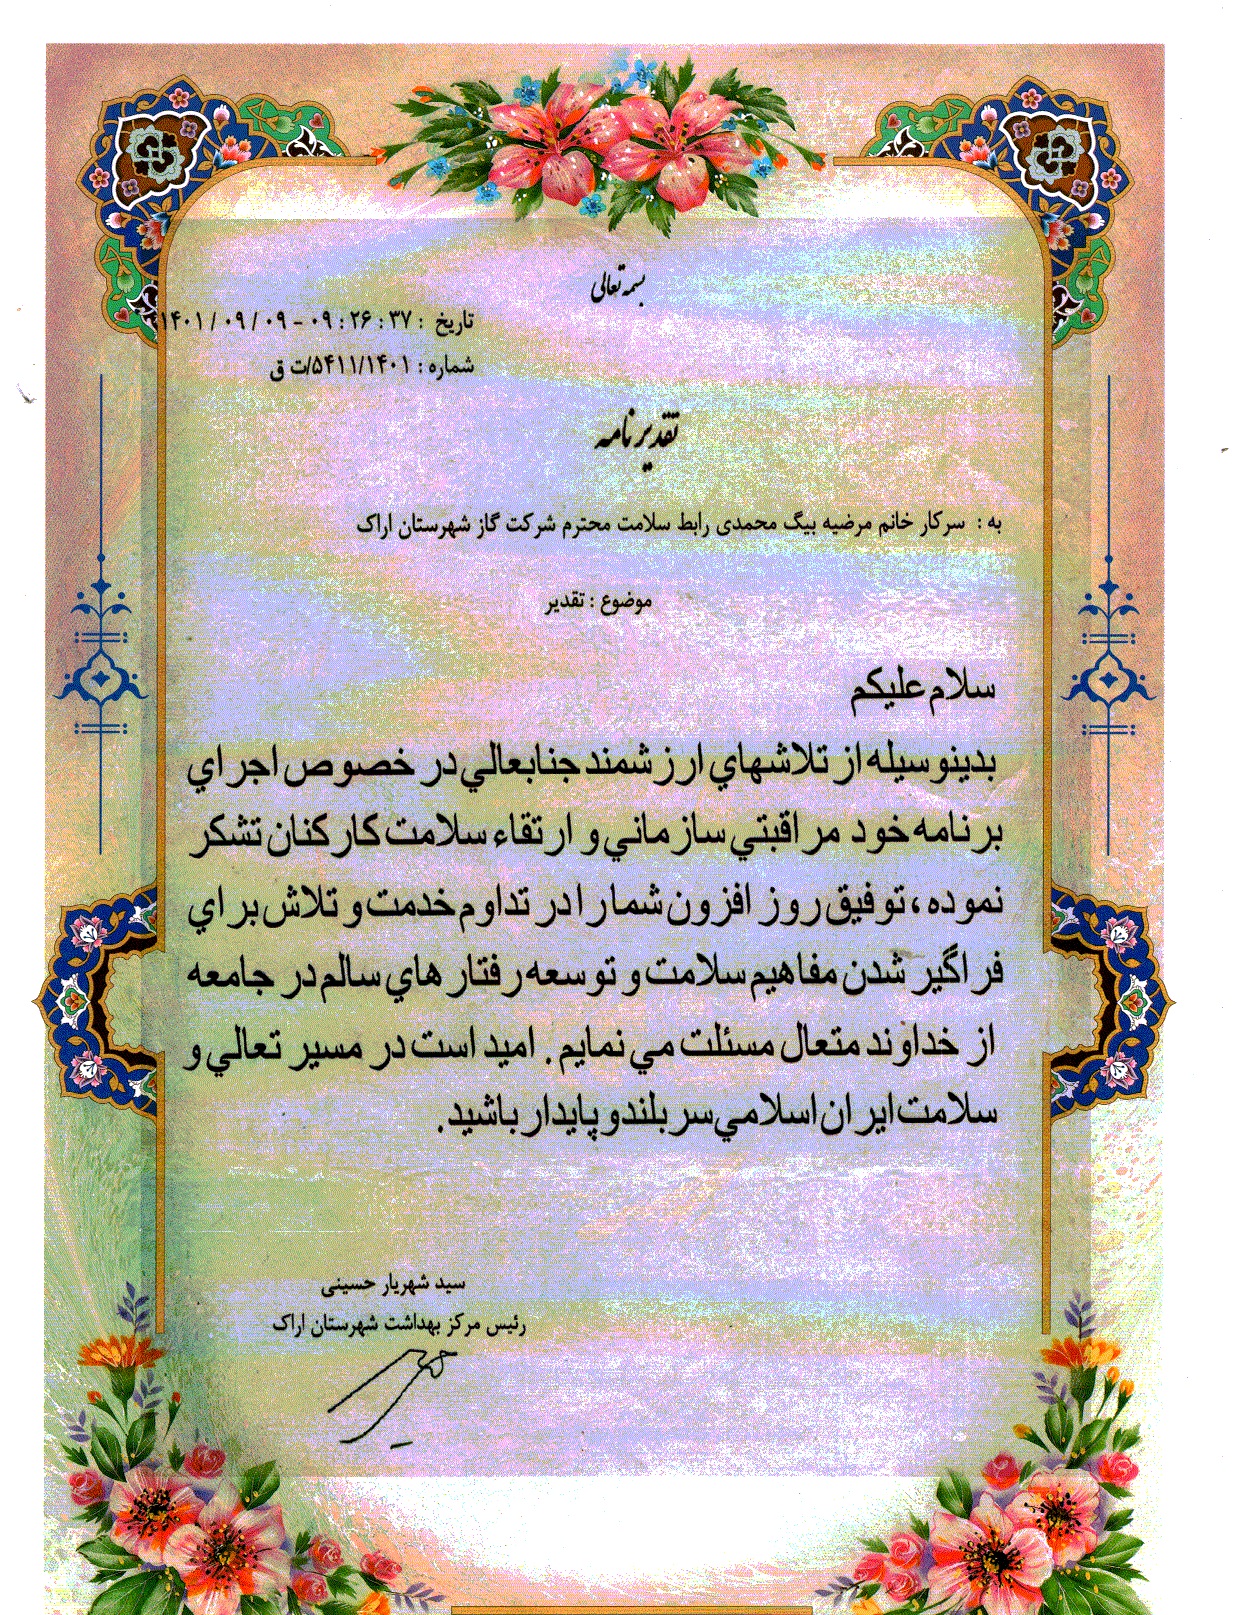 بسمه تعالی
تاریخ : ۰۹:۲۶:۳۷ - ۱۴۰۱/۰۹/۰۹
شماره : ۵۴۱۱/۱۴۰۱/ت ق
تقدیرنامه
به : سرکار خانم مرضیه بیگ محمدی رابط سلامت محترم شرکت گاز شهرستان اراک
موضوع : تقدیر
سلام علیکم
بدینوسیله از تلاشهاي ارزشمند جنابعالي در خصوص اجراي
برنامه خود مراقبتي سازماني و ارتقاء سلامت کارکنان تشکر
نموده، توفیق روز افزون شما را در تداوم خدمت و تلاش براي
فراگیر شدن مفاهیم سلامت و توسعه رفتار هاي سالم در جامعه
از خداوند متعال مسئلت مي نمایم . امید است در مسیر تعالي و
سلامت ایران اسلامي سربلند و پایدار باشید.
سید شهریار حسینی
رئیس مرکز بهداشت شهرستان اراک